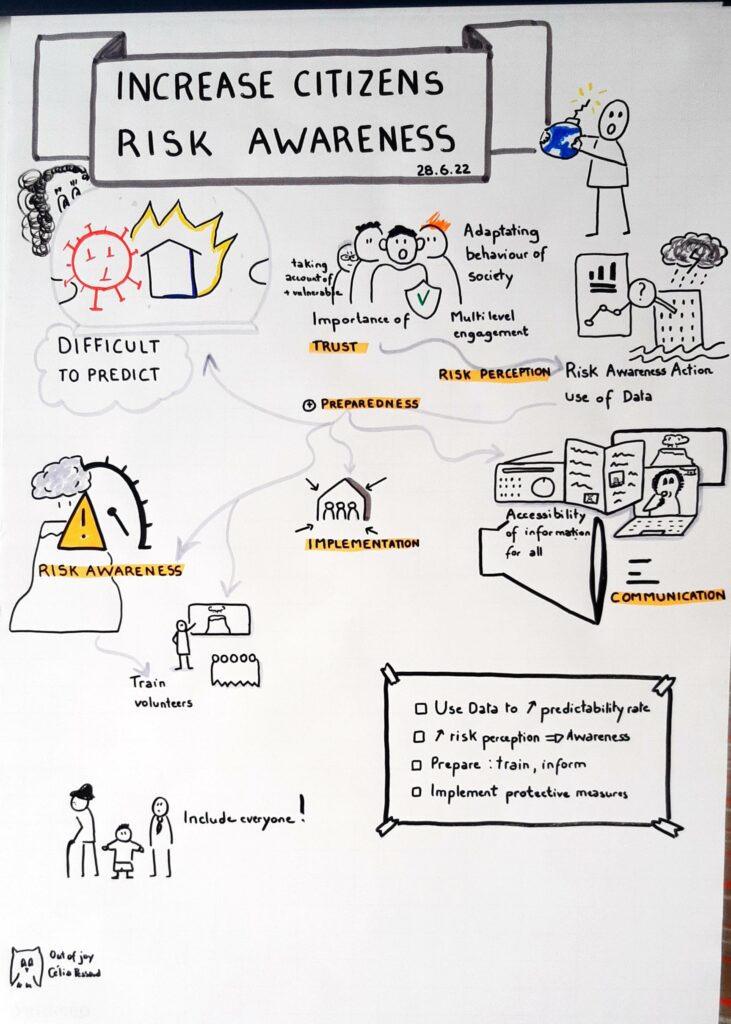 INCREASE CITIZENS
RISK AWARENESS
28.6.22
DIFFICULT
TO PREDICT
taking
account of
+ vulnerable
Importance of
TRUST
Adaptating
behaviour of
society
Multilevel
engagement
RISK PERCEPTION
?
Risk Awareness Action
Use of Data
+ PREPAREDNESS
!
RISK AWARENESS
IMPLEMENTATION
Accessibility
of information
for all
COMMUNICATION
Train
volunteers
□ Use Data to ↗ predictability rate
□ ↗ risk perception ⇒ Awareness
□ Prepare : train, inform
□ Implement protective measures
Include everyone!
Out of joy
Célia